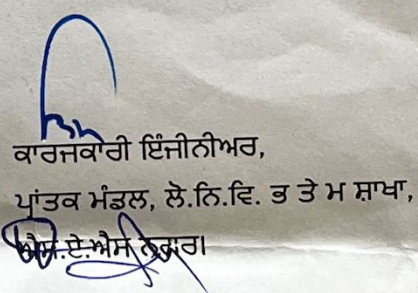 ਕਾਰਜਕਾਰੀ ਇੰਜੀਨੀਅਰ,
ਪ੍ਰਾਂਤਕ ਮੰਡਲ, ਲੋ.ਨਿ.ਵਿ. ਭ ਤੇ ਮ ਸ਼ਾਖਾ,
ਐਸ.ਏ.ਐਸ ਨਗਰ।